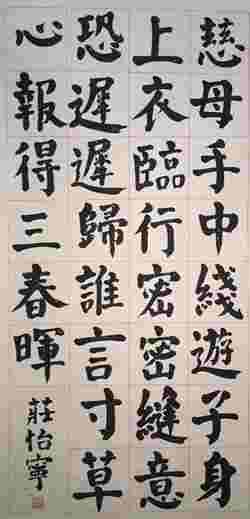 慈母手中綫遊子身
上衣臨行密密縫意
恐遲遲歸誰言寸草
心報得三春暉
莊怡寧